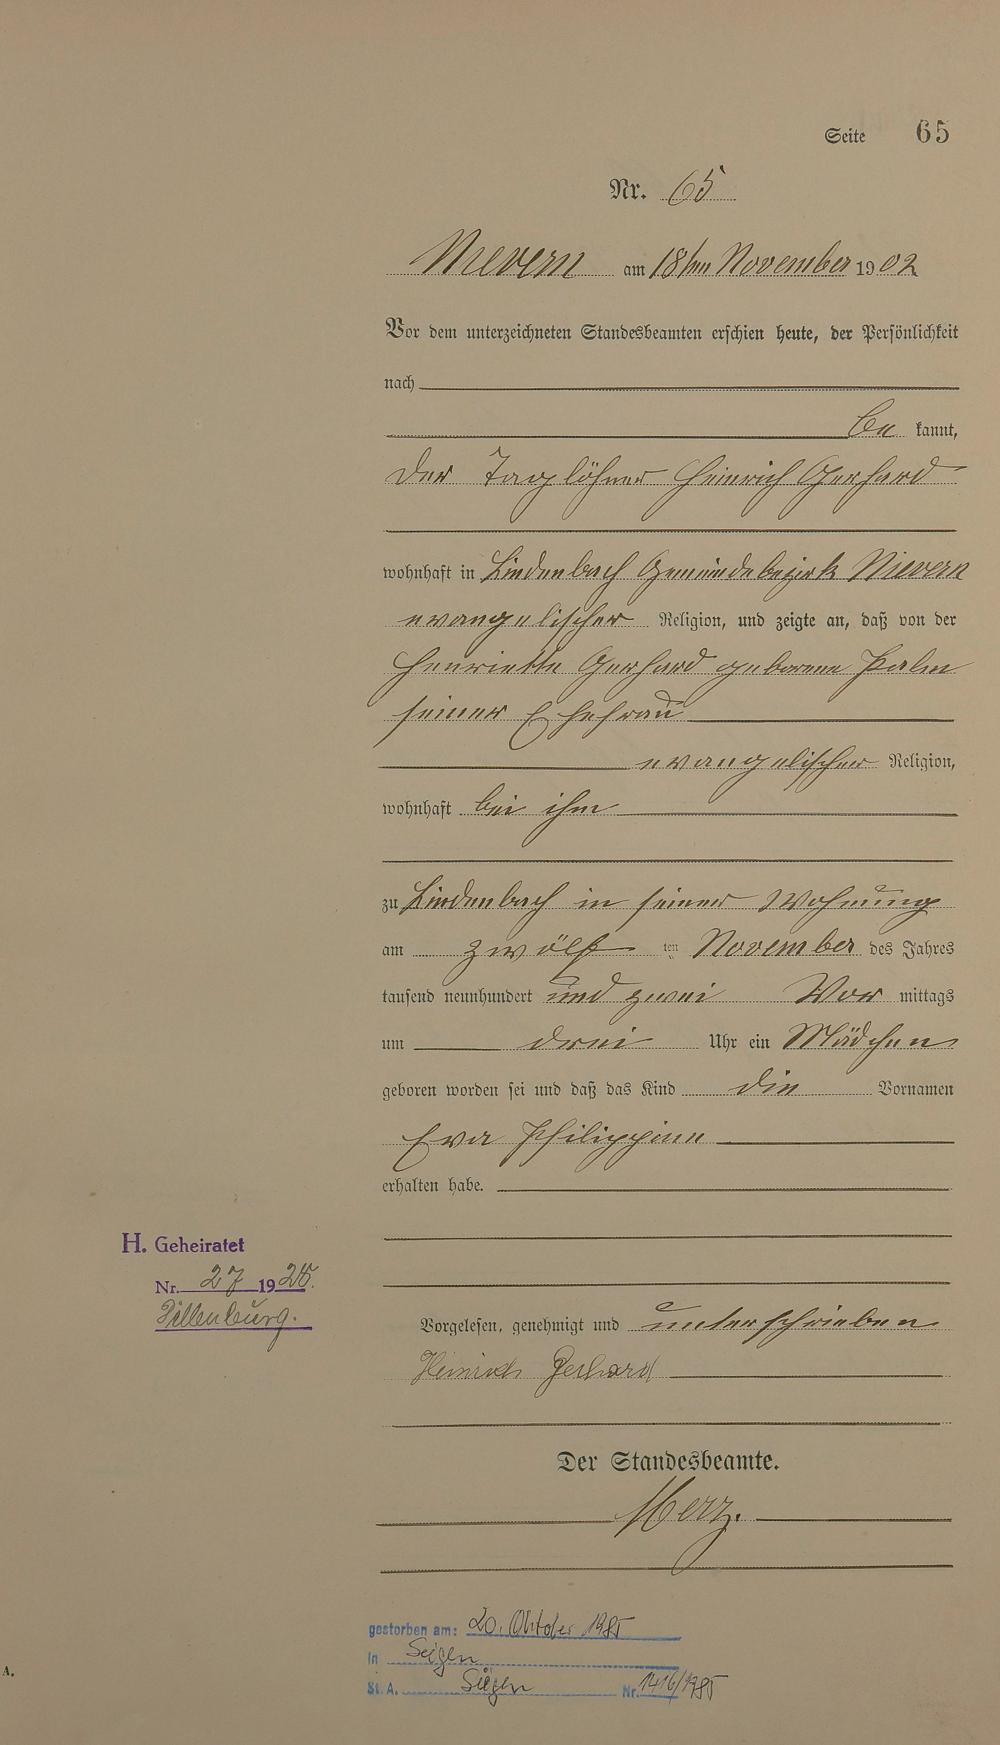 Seite 65
Nr. 65
Nievern am 18ten November 1902
Vor dem unterzeichneten Standesbeamten erschien heute, der Persönlichkeit
nach
be kannt,
der Taglöhner Heinrich Gerhard
wohnhaft in Lindenbach Gemeindebezirk Nievern
evangelischer Religion, und zeigte an, daß von der
Henriette Gerhard geborene Palm
seiner Ehefrau
evangelischer Religion,
wohnhaft bei ihm
zu Lindenbach in seiner Wohnung
am zwölf ten November des Jahres
tausend neunhundert und zwei Vor mittags
um drei Uhr ein Mädchen
geboren worden sei und daß das Kind die Vornamen
Eva Philippine
erhalten habe.
H. Geheiratet
Nr. 27 1925.
Dillenburg.
Vorgelesen, genehmigt und unterschrieben
Heinrich Gerhard
Der Standesbeamte.
Merz.
gestorben am: 20. Oktober 1985
in Siegen
St. A. Siegen Nr. 1416/1985
A.